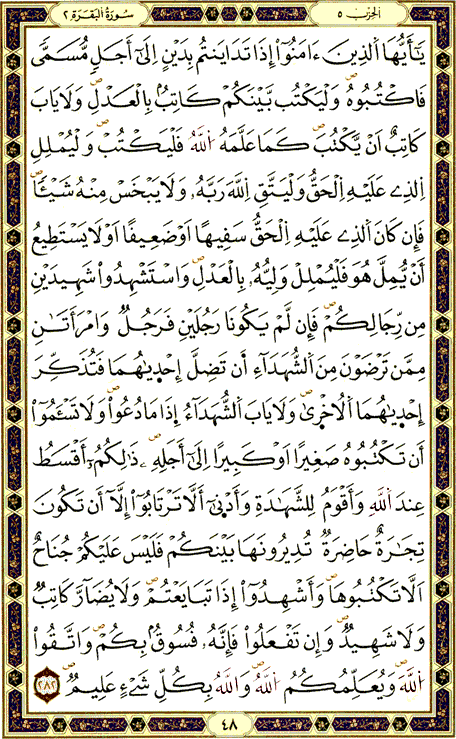 الحزب ٥
سورة البقرة ٢
يَٰٓأَيُّهَا اَلذِينَ ءَامَنُوٓاْ إِذَا تَدَايَنتُم بِدَيْنٍ إِلَىٰٓ أَجَلٖ مُّسَمّٗى
فَاكْتُبُوهُۖ وَلْيَكْتُب بَّيْنَكُمْ كَاتِبُۢ بِالْعَدْلِۖ وَلَا يَابَ
كَاتِبٌ اَنْ يَّكْتُبَ كَمَا عَلَّمَهُ اُللَّهُۖ فَلْيَكْتُبْۖ وَلْيُمْلِلِ
اِلذِے عَلَيْهِ اِلْحَقُّ وَلْيَتَّقِ اِللَّهَ رَبَّهُۥ وَلَا يَبْخَسْ مِنْهُ شَيْـٔٗاۖ
فَإِن كَانَ اَلذِے عَلَيْهِ اِلْحَقُّ سَفِيهاً اَوْ ضَعِيفاً اَوْ لَا يَسْتَطِيعُ
أَنْ يُّمِلَّ هُوَ فَلْيُمْلِلْ وَلِيُّهُۥ بِالْعَدْلِۖ وَاسْتَشْهِدُواْ شَهِيدَيْنِ
مِن رِّجَالِكُمْۖ فَإِن لَّمْ يَكُونَا رَجُلَيْنِ فَرَجُلٞ وَامْرَأَتَٰنِ
مِمَّن تَرْضَوْنَ مِنَ اَلشُّهَدَآءِ اَن تَضِلَّ إِحْدَيٰهُمَا فَتُذَكِّرَ
إِحْدَيٰهُمَا اَلُاخْر۪يٰۖ وَلَا يَابَ اَلشُّهَدَآءُ اِذَا مَا دُعُواْۖ وَلَا تَسْـَٔمُوٓاْ
أَن تَكْتُبُوهُ صَغِيراً اَوْ كَبِيراً اِلَىٰٓ أَجَلِهِۦۖ ذَٰلِكُمُۥٓ أَقْسَطُ
عِندَ اَللَّهِ وَأَقْوَمُ لِلشَّهَٰدَةِ وَأَدْنَىٰٓ أَلَّا تَرْتَابُوٓاْ إِلَّآ أَن تَكُونَ
تِجَٰرَةٌ حَاضِرَةٞ تُدِيرُونَهَا بَيْنَكُمْ فَلَيْسَ عَلَيْكُمْ جُنَاحٌ
اَلَّا تَكْتُبُوهَاۖ وَأَشْهِدُوٓاْ إِذَا تَبَايَعْتُمْۖ وَلَا يُضَآرَّ كَاتِبٞ
وَلَا شَهِيدٞۖ وَإِن تَفْعَلُواْ فَإِنَّهُۥ فُسُوقُۢ بِكُمْۖ وَاتَّقُواْ
اُللَّهَۖ وَيُعَلِّمُكُمُ اُللَّهُۖ وَاللَّهُ بِكُلِّ شَےْءٍ عَلِيمٞۖ ٢٨٢
٤٨